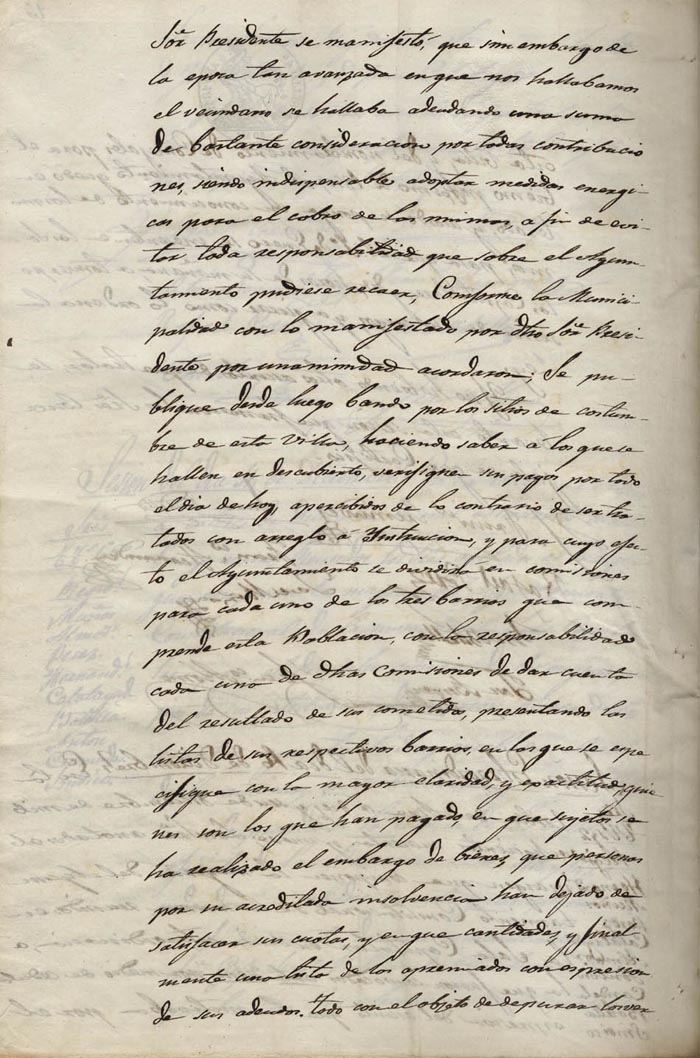 Sor. Presidente se manifestó, que sin embargo de
la epoca tan avanzada en que nos hallabamos
el vecindario se hallaba adeudando una suma
de bastante consideracion por todas contribucio
nes, siendo indispensable adoptar medidas energi-
cas para el cobro de las mismas, a fin de evi-
tar toda responsabilidad que sobre el Ayun-
tamiento pudiese recaer, Conforme la Munici-
palidad con lo manifestado por dho Sor. Presi-
dente por unanimidad acordaron; Se pu-
blique desde luego bando por los sitios de costum-
bre de esta Villa, haciendo saber a los que se
hallen en descubierto, verifiquen sus pagos por todo
el dia de hoy, apercibidos de lo contrario de ser tra-
tados con arreglo á Instruccion, y para cuyo efec-
to el Ayuntamiento se dividira en comisiones
para cada uno de los tres barrios que com-
prende esta Poblacion, con la responsabilidad
cada una de dhas Comisiones de dar cuenta
del resultado de sus cometidos, presentando las
listas de sus respectivos barrios, en las que se espe
cifique con la mayor claridad, y exactitud, quie
nes son los que han pagado, en que sujetos se
ha realizado el embargo de bienes, que personas
por su acreditada insolvencia han dejado de
satisfacer sus cuotas, y en que cantidades, y final
mente una lista de los apremiados con espresion
de sus adeudos. todo con el objeto de depurar los ver